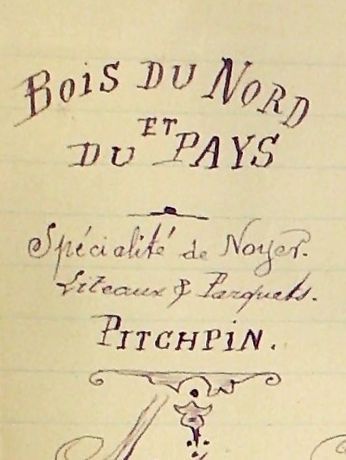 BOIS DU NORD
ET
DU PAYS
Spécialité de Noyer.
Liteaux & Parquets.
PITCHPIN.